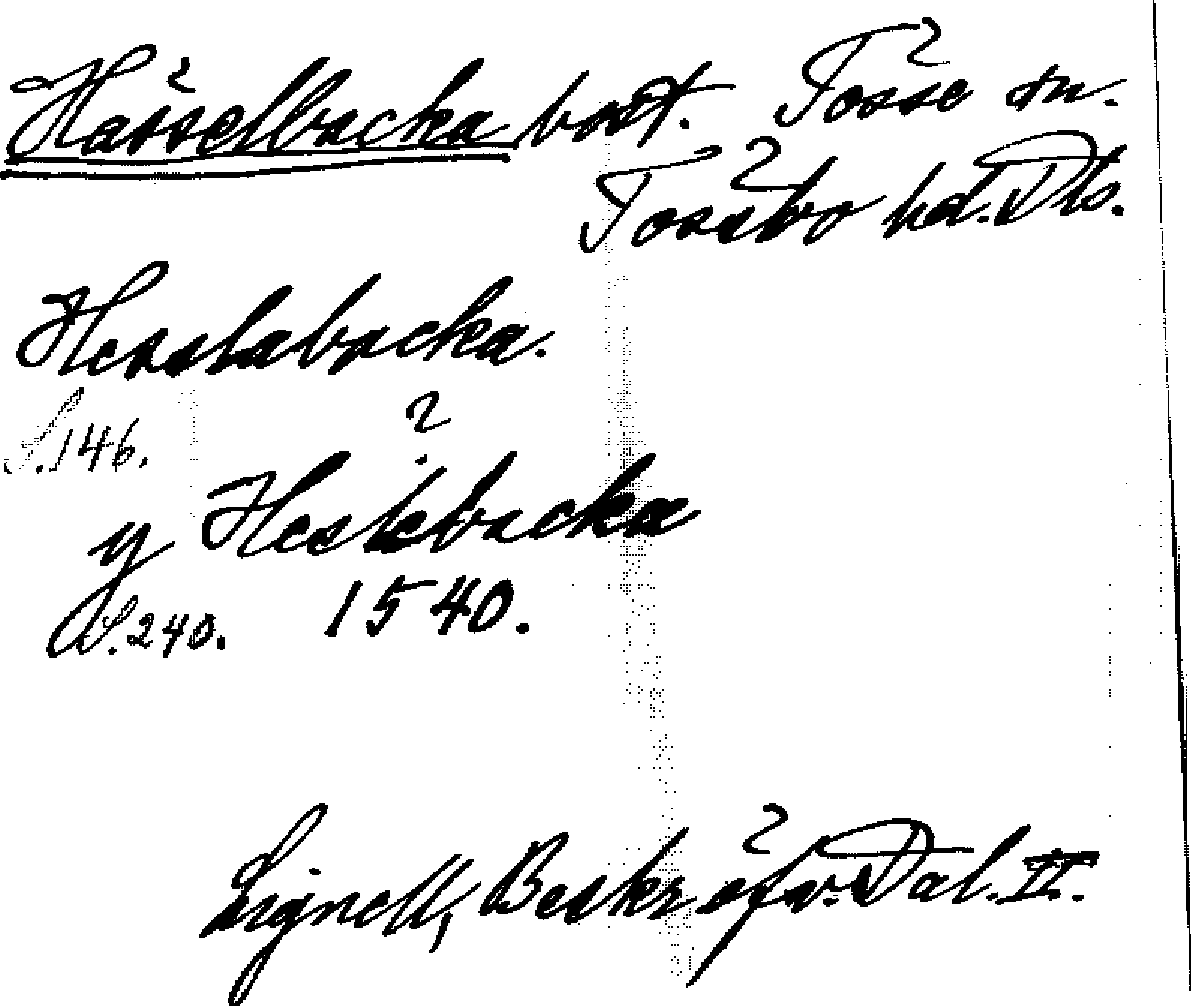 Hässelbacka bost. Tösse sn.
Tössbo hd. Dls.
Hesslabacka.
S. 146.
y Heslebacka
S. 240. 1540.
Lignell, Beskr. öfv. Dal. II.